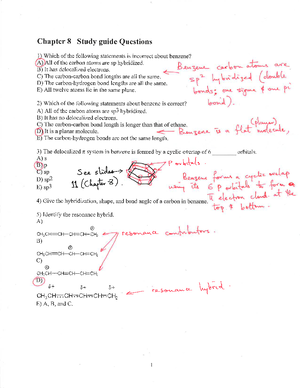 Chapter 8 Study guide Questions
1) Which of the following statements is incorrect about benzene?
A) All of the carbon atoms are sp hybridized.
B) It has delocalized electrons.
C) The carbon-carbon bond lengths are all the same.
D) The carbon-hydrogen bond lengths are all the same.
E) All twelve atoms lie in the same plane.
Benzene carbon atoms are
sp² hybridized (double
bonds; one sigma & one pi
bond).
2) Which of the following statements about benzene is correct?
A) All of the carbon atoms are sp3 hybridized.
B) It has no delocalized electrons.
C) The carbon-carbon bond length is longer than that of ethene.
D) It is a planar molecule.
E) The carbon-hydrogen bonds are not the same length.
(planar)
Benzene is a flat molecule,
3) The delocalized π system in benzene is formed by a cyclic overlap of 6 orbitals.
A) s
B) p
C) sp
D) sp2
E) sp3
See slides
11 (Chapter 8).
P orbitals.
Benzene forms a cyclic overlap
using its 6 P orbitals to form a
π electron cloud at the
top & bottom.
4) Give the hybridization, shape, and bond angle of a carbon in benzene.
5) Identify the resonance hybrid.
A)
CH₂CH=CH—CH=CH—CH₂
resonance contributors.
B)
C)
D)
δ+ δ+ δ+
resonance hybrid.
E) A, B, and C.
1